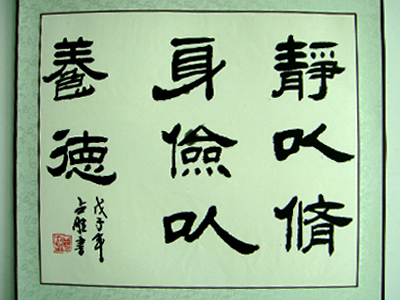 靜以脩
身儉以
養德
戊子年